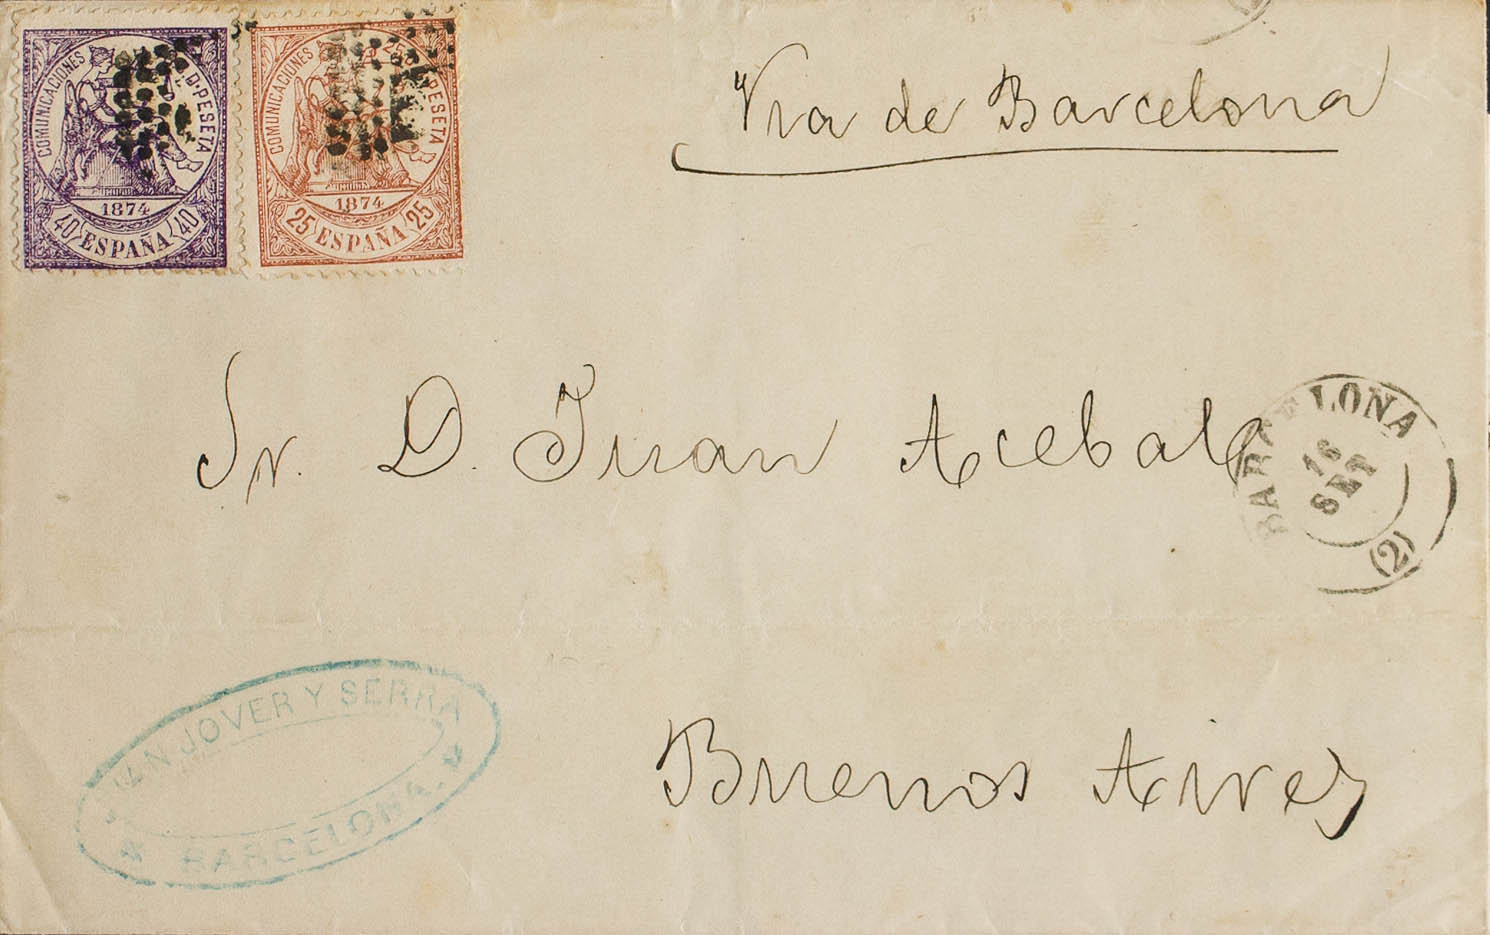 COMUNICACIONES
40 Cs D PESETA
1874
40 ESPAÑA 40
COMUNICACIONES
25 Cs D PESETA
1874
25 ESPAÑA 25
Via de Barcelona
Sr. D. Juan Acebal
BARCELONA
16
SET
(2)
JUAN JOVER Y SERRA
BARCELONA.
Buenos Aires